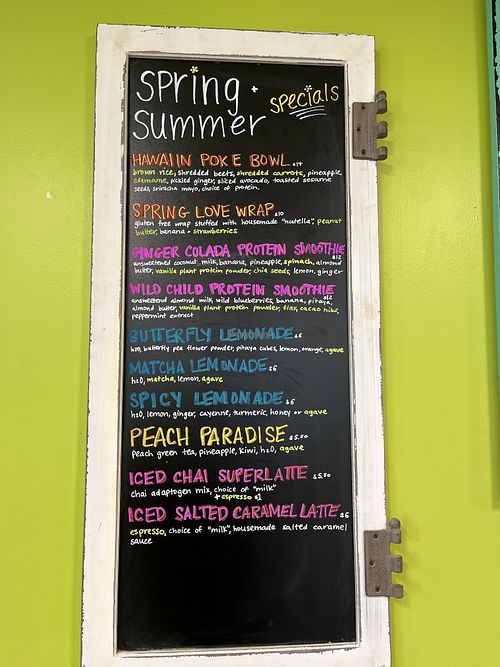 Spring +
specials
Summer
HAWAIIN POKE BOWL $14
brown rice, shredded beets, shredded carrots, pineapple,
edemame, pickled ginger, sliced avocado, toasted sesame
seeds, sriracha mayo, choice of protein.
SPRING LOVE WRAP $10
gluten free wrap stuffed with housemade "nutella", peanut
butter, banana + strawberries
GINGER COLADA PROTEIN SMOOTHIE
$12
unsweetened coconut milk, banana, pineapple, spinach, almond
butter, vanilla plant protein powder, chia seeds, lemon, ginger
WILD CHILD PROTEIN SMOOTHIE
$12
unsweetened almond milk, wild blueberries, banana, pitaya,
almond butter, vanilla plant protein powder, flax, cacao nibs,
peppermint extract
BUTTERFLY LEMONADE $6
h2O, butterfly pea flower powder, pitaya cubes, lemon, orange, agave
MATCHA LEMONADE $6
h2O, matcha, lemon, agave
SPICY LEMONADE $6
h2O, lemon, ginger, cayenne, turmeric, honey or agave
PEACH PARADISE $5.50
peach green tea, pineapple, kiwi, h2O, agave
ICED CHAI SUPERLATTE $5.50
chai adaptogen mix, choice of "milk"
+ espresso $1
ICED SALTED CARAMEL LATTE $6
espresso, choice of "milk", housemade salted caramel
sauce